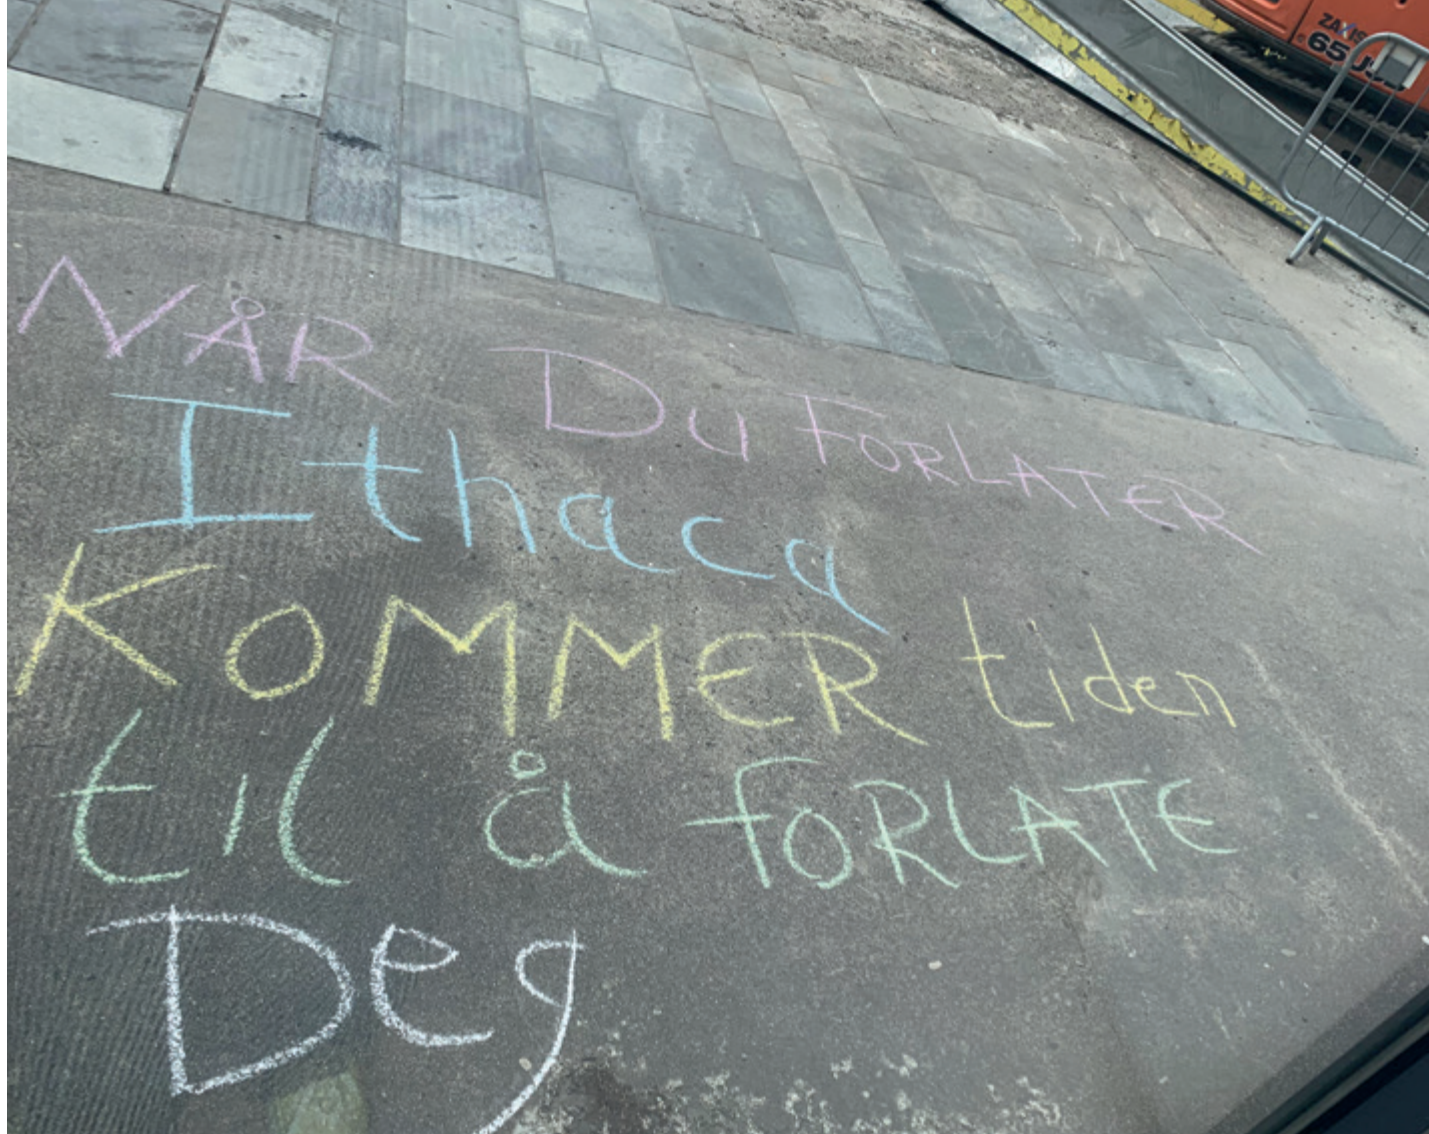 NÅR DU FORLATER
Ithaca
KOMMER tiden
til å fORLATE
Deg
ZAXIS
65U